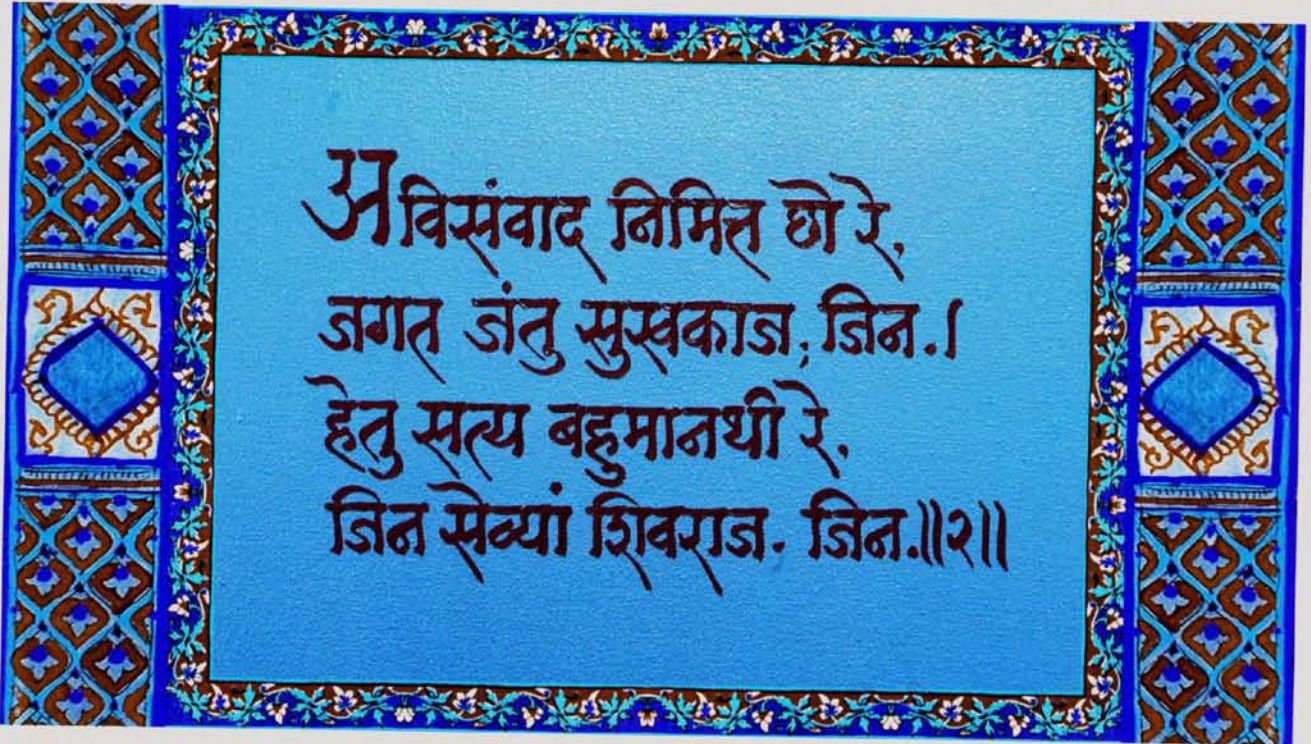 अविसंवाद निमित्त छो रे,
जगत जंतु सुखकाज; जिन.।
हेतु सत्य बहुमानथी रे,
जिन सेव्यां शिवराज. जिन.॥२॥